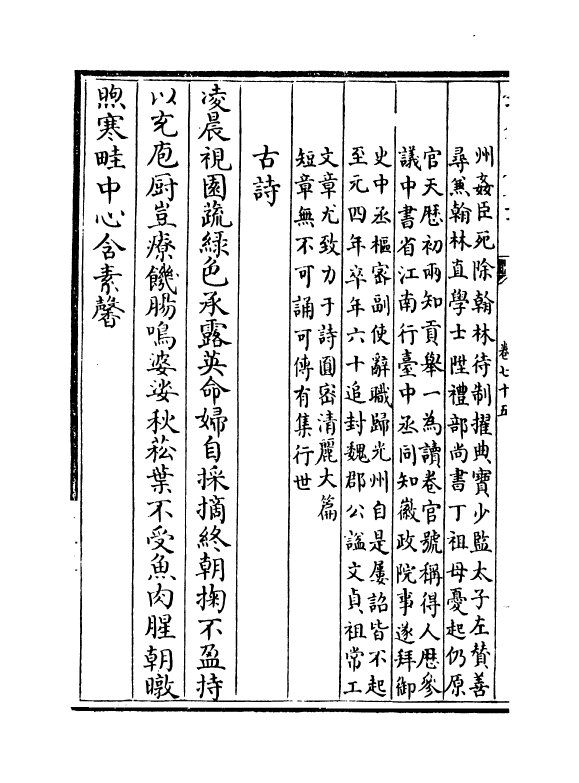 卷七十五
州姦臣死除翰林待制擢典寶少監太子左賛善
尋兼翰林直學士陞禮部尚書丁祖母憂起仍原
官天歴初兩知貢舉一為讀卷官號稱得人歴參
議中書省江南行臺中丞同知徽政院事遂拜御
史中丞樞密副使辭職歸光州自是屢詔皆不起
至元四年卒年六十追封魏郡公諡文貞祖常工
文章尤致力于詩圓密清麗大篇
短章無不可誦可傳有集行世
古詩
凌晨視園蔬綠色承露英命婦自採摘終朝掬不盈持
以充庖厨豈療饑腸鳴婆娑秋菘葉不受魚肉腥朝暾
煦寒畦中心含素馨